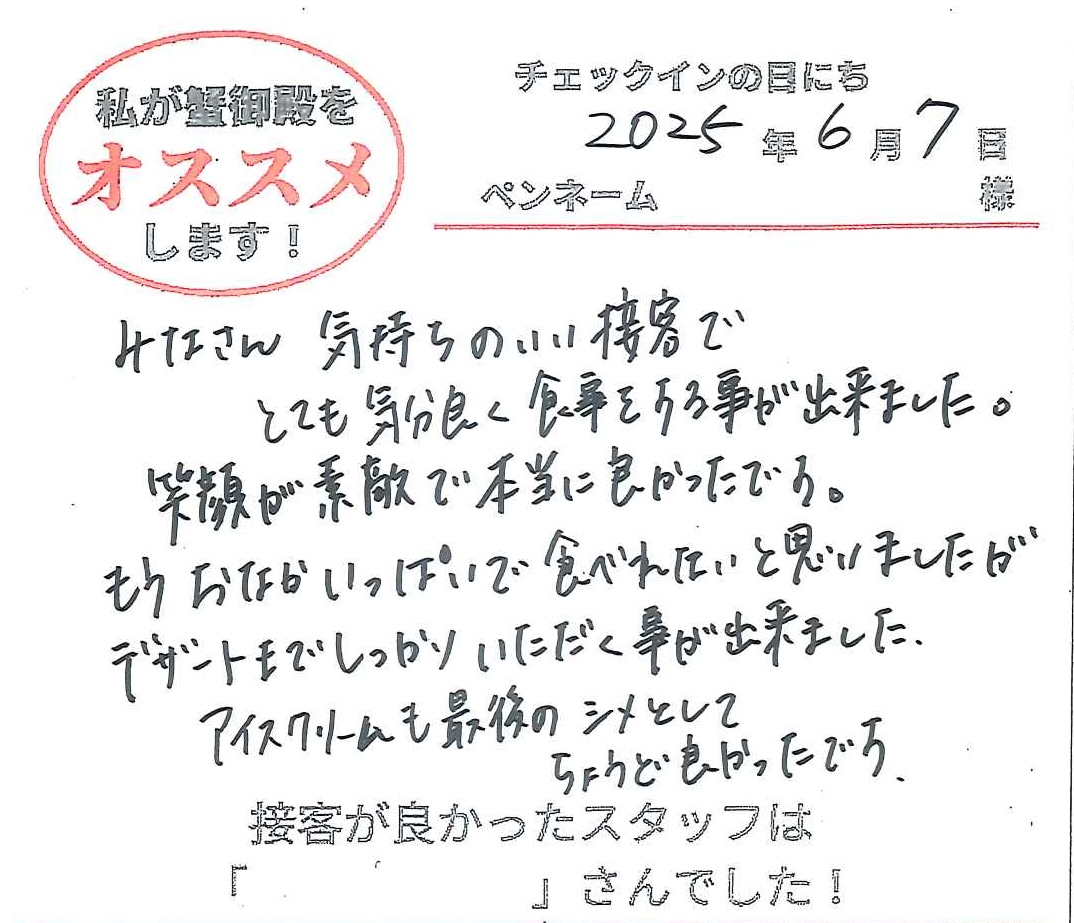 私が蟹御殿を
オススメ
します!
チェックインの日にち
2025年6月7日
ペンネーム 様
みなさん 気持ちのいい接客で
とても気分良く食事をする事が出来ました。
笑顔が素敵で本当に良かったです。
もうおなかいっぱいで食べれないと思いましたが
デザートまでしっかりいただく事が出来ました.
アイスクリームも最後のシメとして
ちょうど良かったです.
接客が良かったスタッフは
「 」さんでした!